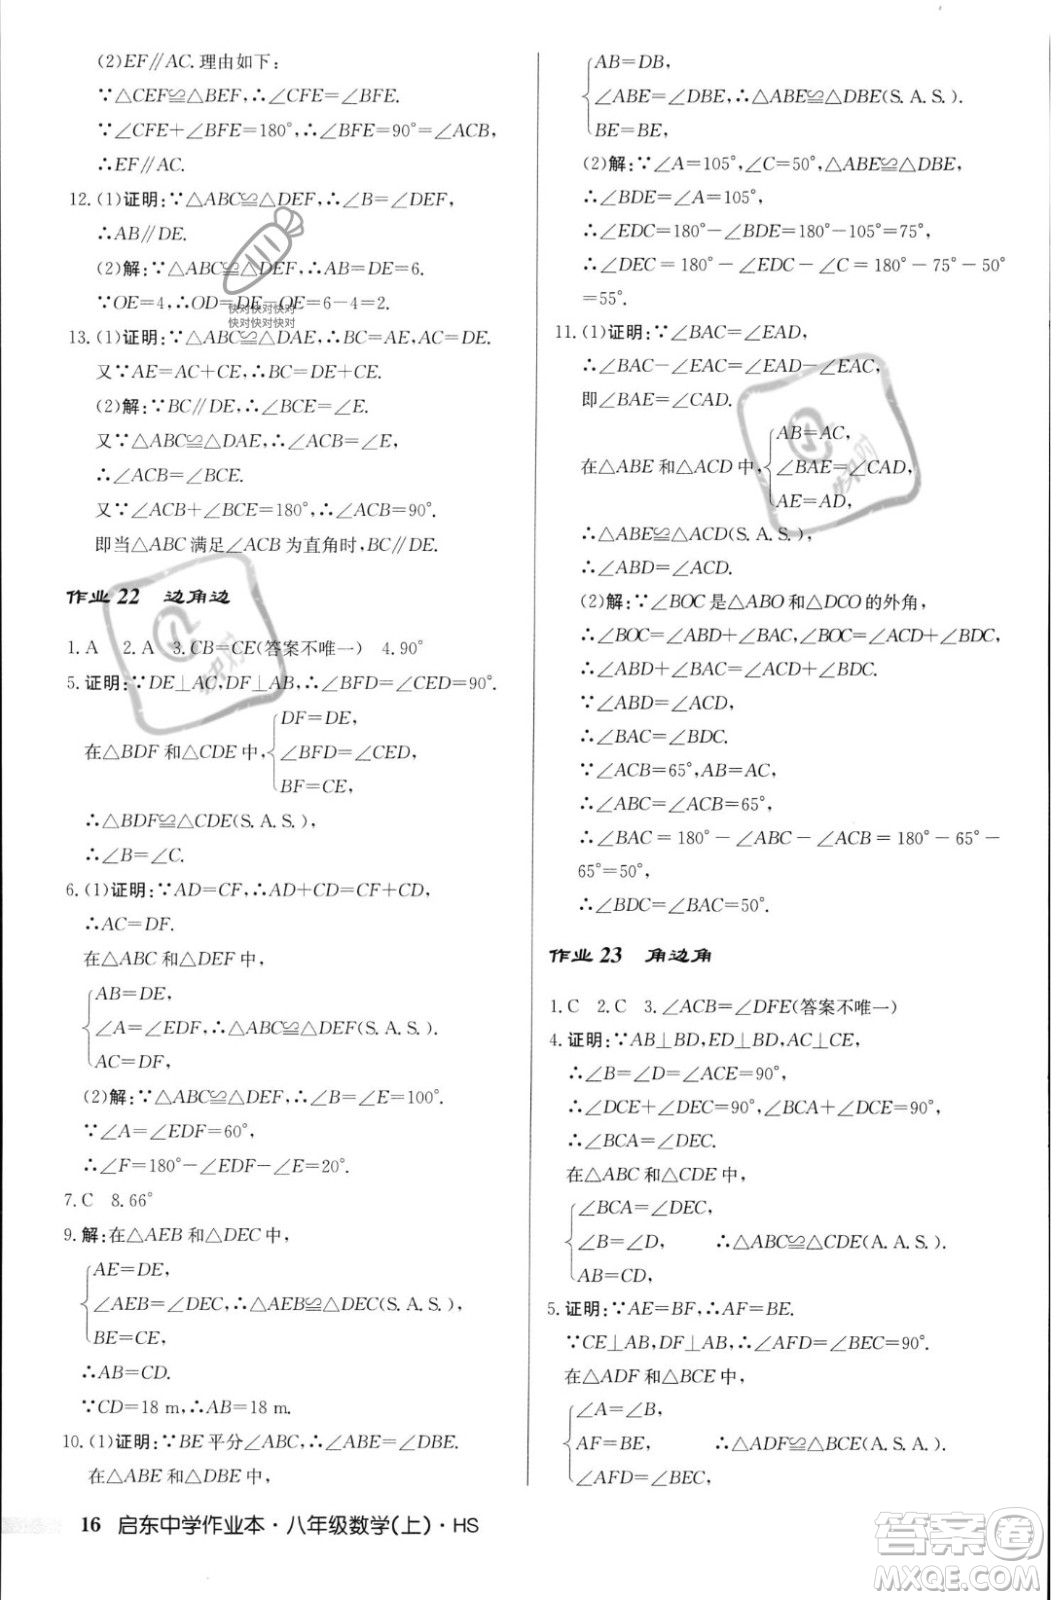 (2)EF∥AC.理由如下:
∵△CEF≌△BEF,∴∠CFE=∠BFE.
∵∠CFE+∠BFE=180°,∴∠BFE=90°=∠ACB,
∴EF∥AC.
12.(1)证明:∵△ABC≌△DEF,∴∠B=∠DEF,
∴AB∥DE.
(2)解:∵△ABC≌△DEF,∴AB=DE=6.
∵OE=4,∴OD=DE-OE=6-4=2.
快对快对快对
快对快对快对
13.(1)证明:∵△ABC≌△DAE,∴BC=AE,AC=DE.
又∵AE=AC+CE,∴BC=DE+CE.
(2)解:∵BC∥DE,∴∠BCE=∠E.
又∵△ABC≌△DAE,∴∠ACB=∠E,
∴∠ACB=∠BCE.
又∵∠ACB+∠BCE=180°,∴∠ACB=90°.
即当△ABC满足∠ACB为直角时,BC∥DE.
作业22 边角边
1.A 2.A 3.CB=CE(答案不唯一) 4.90°
5.证明:∵DE⊥AC,DF⊥AB,∴∠BFD=∠CED=90°.
DF=DE,
在△BDF和△CDE中,∠BFD=∠CED,
BF=CE,
∴△BDF≌△CDE(S.A.S.),
∴∠B=∠C.
6.(1)证明:∵AD=CF,∴AD+CD=CF+CD,
∴AC=DF.
在△ABC和△DEF中,
AB=DE,
∠A=∠EDF,∴△ABC≌△DEF(S.A.S.).
AC=DF,
(2)解:∵△ABC≌△DEF,∴∠B=∠E=100°.
∵∠A=∠EDF=60°,
∴∠F=180°-∠EDF-∠E=20°.
7.C 8.66°
9.解:在△AEB和△DEC中,
AE=DE,
∠AEB=∠DEC,∴△AEB≌△DEC(S.A.S.),
BE=CE,
∴AB=CD.
∵CD=18 m,∴AB=18 m.
10.(1)证明:∵BE平分∠ABC,∴∠ABE=∠DBE.
在△ABE和△DBE中,
16 启东中学作业本·八年级数学(上)·HS
AB=DB,
∠ABE=∠DBE,∴△ABE≌△DBE(S.A.S.).
BE=BE,
(2)解:∵∠A=105°,∠C=50°,△ABE≌△DBE,
∴∠BDE=∠A=105°,
∴∠EDC=180°-∠BDE=180°-105°=75°,
∴∠DEC=180°-∠EDC-∠C=180°-75°-50°
=55°.
11.(1)证明:∵∠BAC=∠EAD,
∴∠BAC-∠EAC=∠EAD-∠EAC,
即∠BAE=∠CAD.
AB=AC,
在△ABE和△ACD中,∠BAE=∠CAD,
AE=AD,
∴△ABE≌△ACD(S.A.S.).
∴∠ABD=∠ACD.
(2)解:∵∠BOC是△ABO和△DCO的外角,
∴∠BOC=∠ABD+∠BAC,∠BOC=∠ACD+∠BDC,
∴∠ABD+∠BAC=∠ACD+∠BDC.
∵∠ABD=∠ACD,
∴∠BAC=∠BDC.
∵∠ACB=65°,AB=AC,
∴∠ABC=∠ACB=65°.
∴∠BAC=180°-∠ABC-∠ACB=180°-65°-
65°=50°,
∴∠BDC=∠BAC=50°.
作业23 角边角
1.C 2.C 3.∠ACB=∠DFE(答案不唯一)
4.证明:∵AB⊥BD,ED⊥BD,AC⊥CE,
∴∠B=∠D=∠ACE=90°,
∴∠DCE+∠DEC=90°,∠BCA+∠DCE=90°,
∴∠BCA=∠DEC.
在△ABC和△CDE中,
∠BCA=∠DEC,
∠B=∠D, ∴△ABC≌△CDE(A.A.S.).
AB=CD,
5.证明:∵AE=BF,∴AF=BE.
∵CE⊥AB,DF⊥AB,∴∠AFD=∠BEC=90°.
在△ADF和△BCE中,
∠A=∠B,
AF=BE, ∴△ADF≌△BCE(A.S.A.).
∠AFD=∠BEC,
答案圈
MXQE.COM